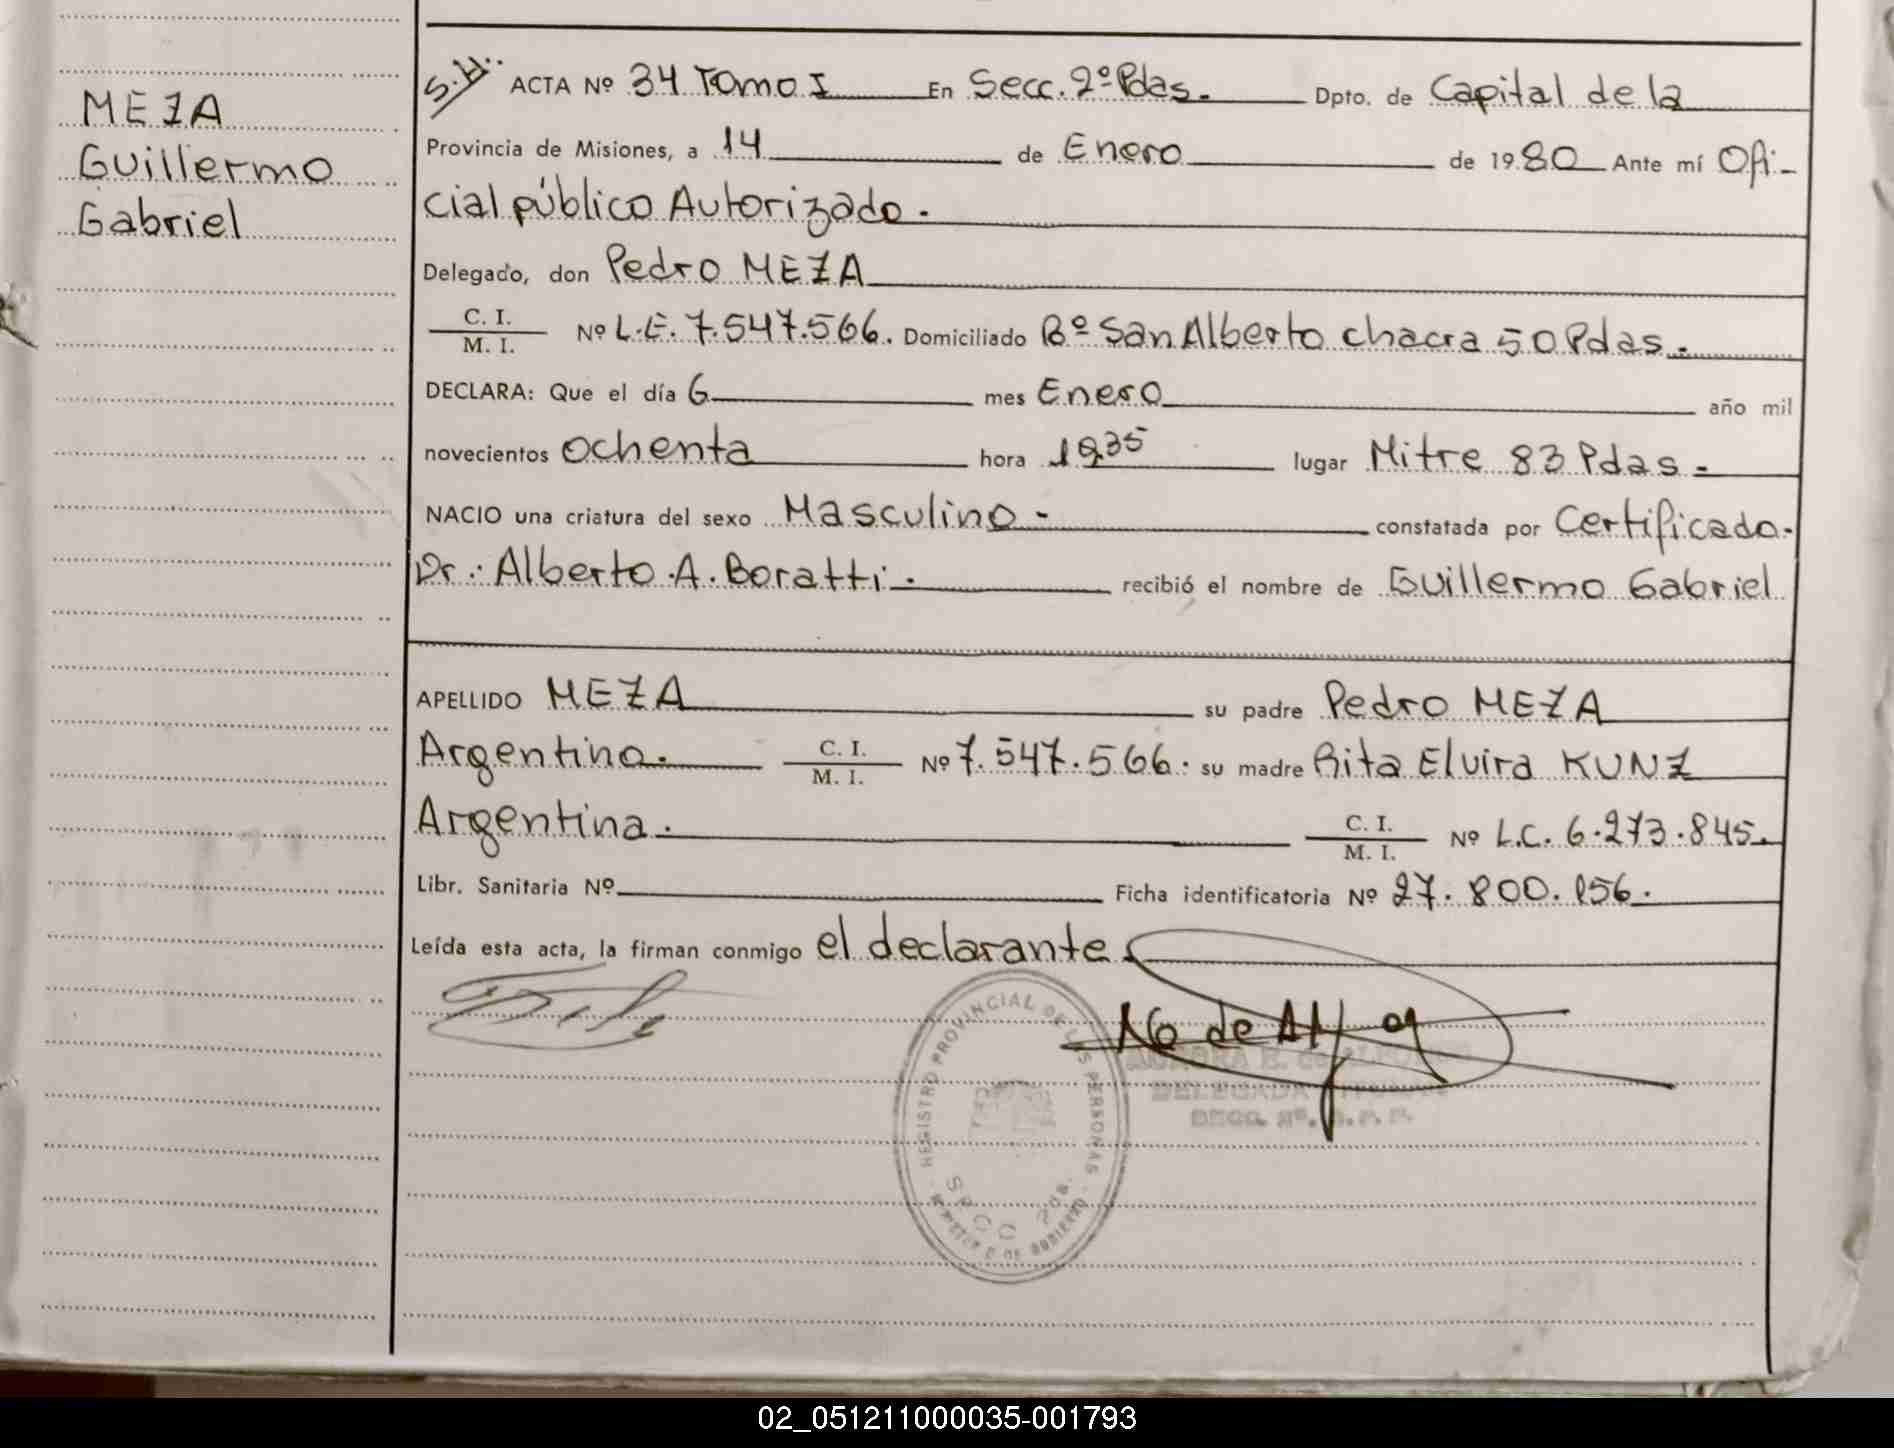 MEZA
Guillermo
Gabriel
S.H. ACTA Nº 34 Tomo I En Secc. 2º Pdas. Dpto. de Capital de la
Provincia de Misiones, a 14 de Enero de 1980 Ante mí Ofi-
cial público Autorizado.
Delegado, don Pedro MEZA
C. I.
M. I. Nº L.E. 7.547.566. Domiciliado Bº San Alberto chacra 50 Pdas.
DECLARA: Que el día 6 mes Enero año mil
novecientos ochenta hora 19,35 lugar Mitre 83 Pdas.
NACIO una criatura del sexo Masculino - constatada por Certificado.
Dr. Alberto A. Boratti. recibió el nombre de Guillermo Gabriel
APELLIDO MEZA su padre Pedro MEZA
Argentino. C. I.
M. I. Nº 7.547.566. su madre Rita Elvira KUNZ
Argentina. C. I.
M. I. Nº L.C. 6.273.845.
Libr. Sanitaria Nº Ficha identificatoria Nº 27.800.156.
Leída esta acta, la firman conmigo el declarante
REGISTRO PROVINCIAL DE LAS PERSONAS
SECC 2da.
DELEGADA
02_051211000035-001793